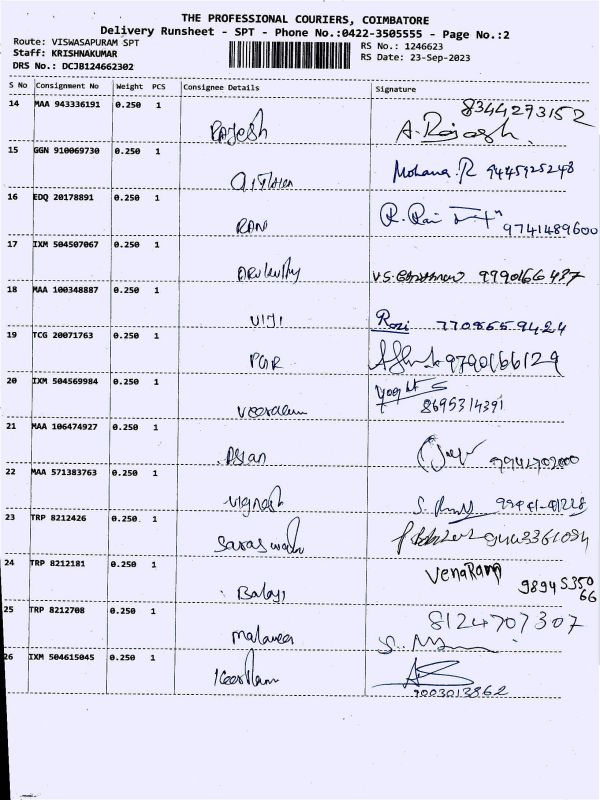 THE PROFESSIONAL COURIERS, COIMBATORE
Delivery Runsheet - SPT - Phone No.:0422-3505555 - Page No.:2
Route: VISWASAPURAM SPT
Staff: KRISHNAKUMAR
DRS No.: DCJB124662302
RS No.: 1246623
RS Date: 23-Sep-2023
S No Consignment No Weight PCS Consignee Details Signature
14 MAA 943336191 0.250 1 8344273152
Rajesh A. Rajesh
15 GGN 910069730 0.250 1
Mohana.R 9445925248
16 EDQ 20178891 0.250 1
RANI 9741489600
17 IXM 504507067 0.250 1
9990166437
18 MAA 100348887 0.250 1
VIJI Rozi 7708659424
19 TCG 20071763 0.250 1
PGR 9790166129
20 IXM 504569984 0.250 1
8695314391
21 MAA 106474927 0.250 1
Asian 9942702000
22 MAA 571383763 0.250 1
Vignesh
23 TRP 8212426 0.250 1
Saraswathi 9443361094
24 TRP 8212181 0.250 1 VENARAM
Balaji 9894535066
25 TRP 8212708 0.250 1 8124707307
Malaveer
26 IXM 504615045 0.250 1
Keertham 9003013862